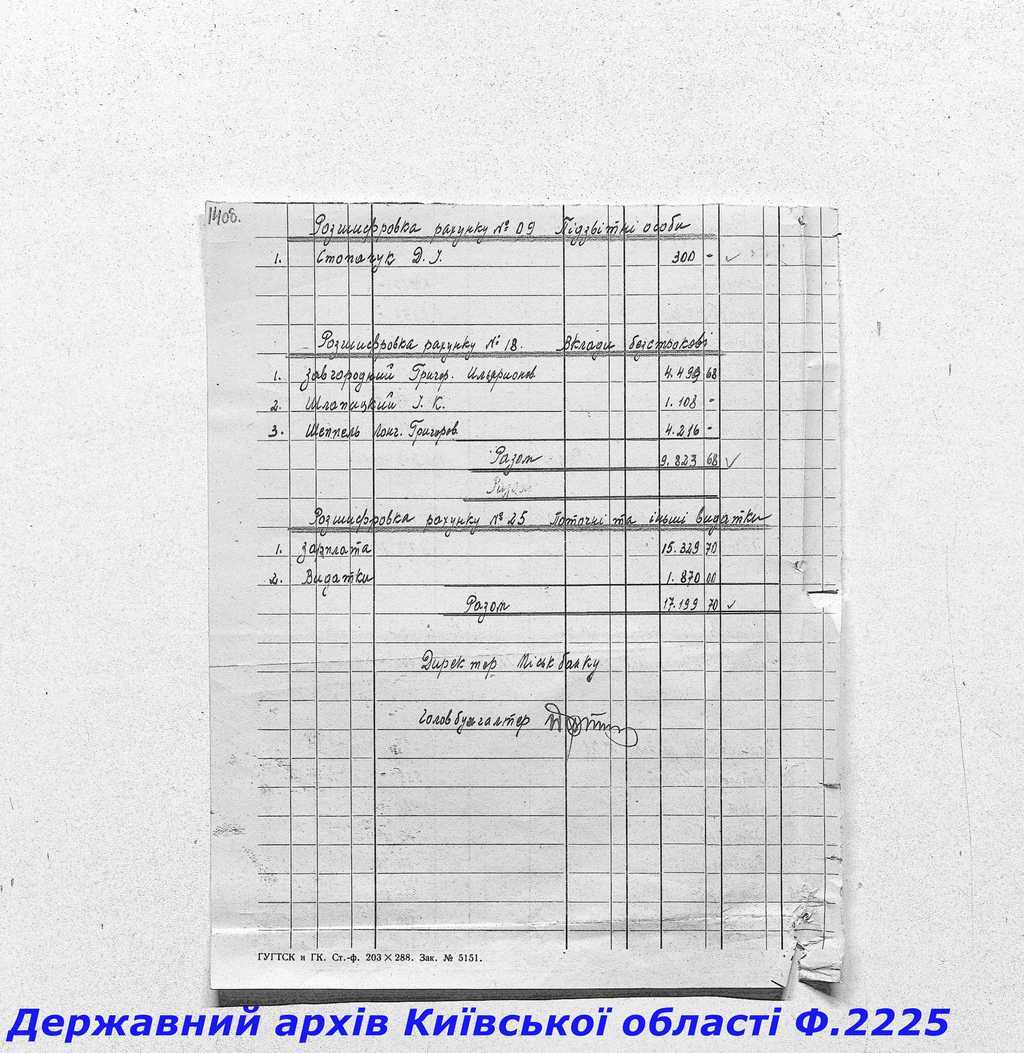 14об.
Розшифровка рахунку № 09 Підзвітні особи
1. Стопачук Д. І. 300 -
Розшифровка рахунку № 18. Вклади безстрокові
1. Завгородний Григор. Илларионов 4.499 68
2. Шлапицкий І. К. 1.108 -
3. Шеппель Лонг. Григоров. 4.216 -
Разом 9.823 68
Разом
Розшифровка рахунку № 25 Поточні та іньші видатки
1. Зарплата 15.329 70
2. Видатки 1.870 00
Разом 17.199 70
Директор Міськбанку
Головбухгалтер
ГУГТСК и ГК. Ст.-ф. 203 × 288. Зак. № 5151.
Державний архів Київської області Ф.2225